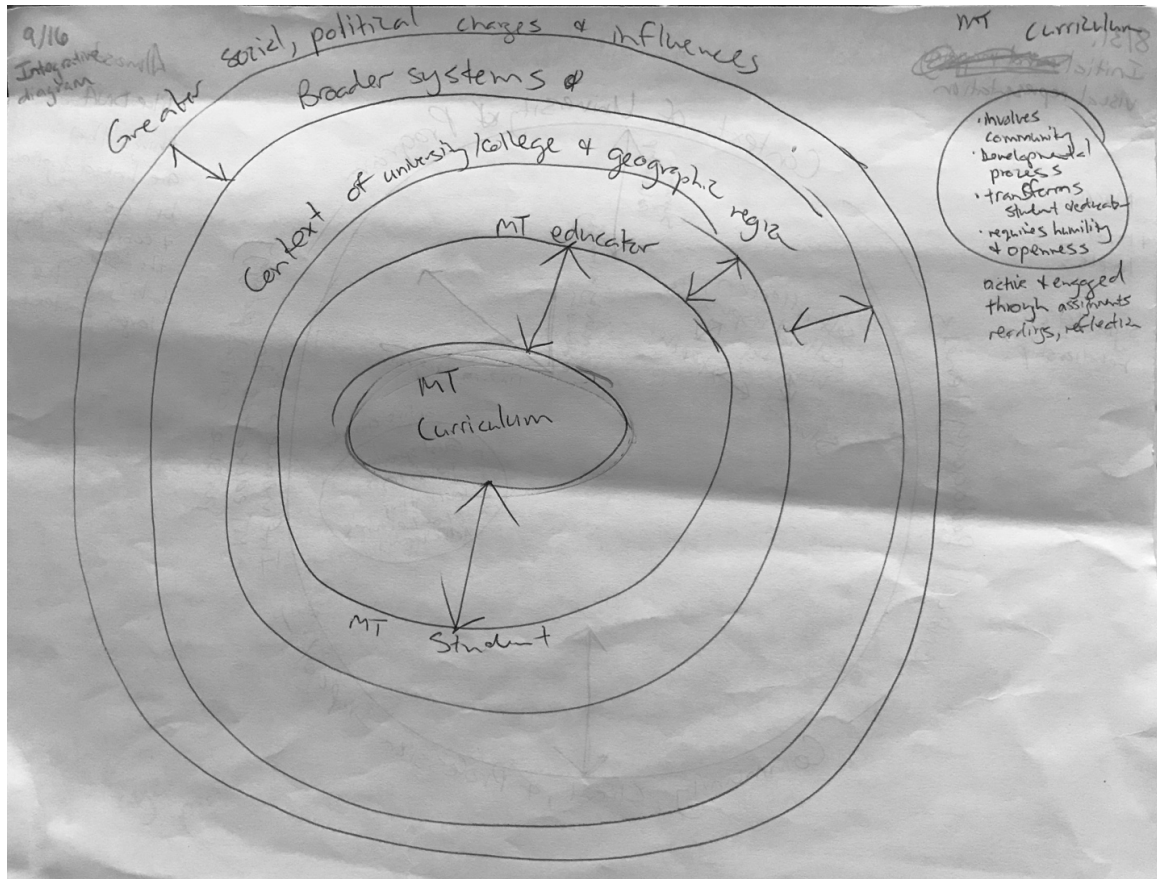 9/16
Integrative
diagram
Greater social, political changes & influences
Broader systems &
Context of university/college & geographic region
MT educator
MT
Curriculum
MT Student
MT Curriculum
• Involves
community
• Developmental
process
• transforms
student & educator
• requires humility
& openness
active & engaged
through assignments
readings, reflection